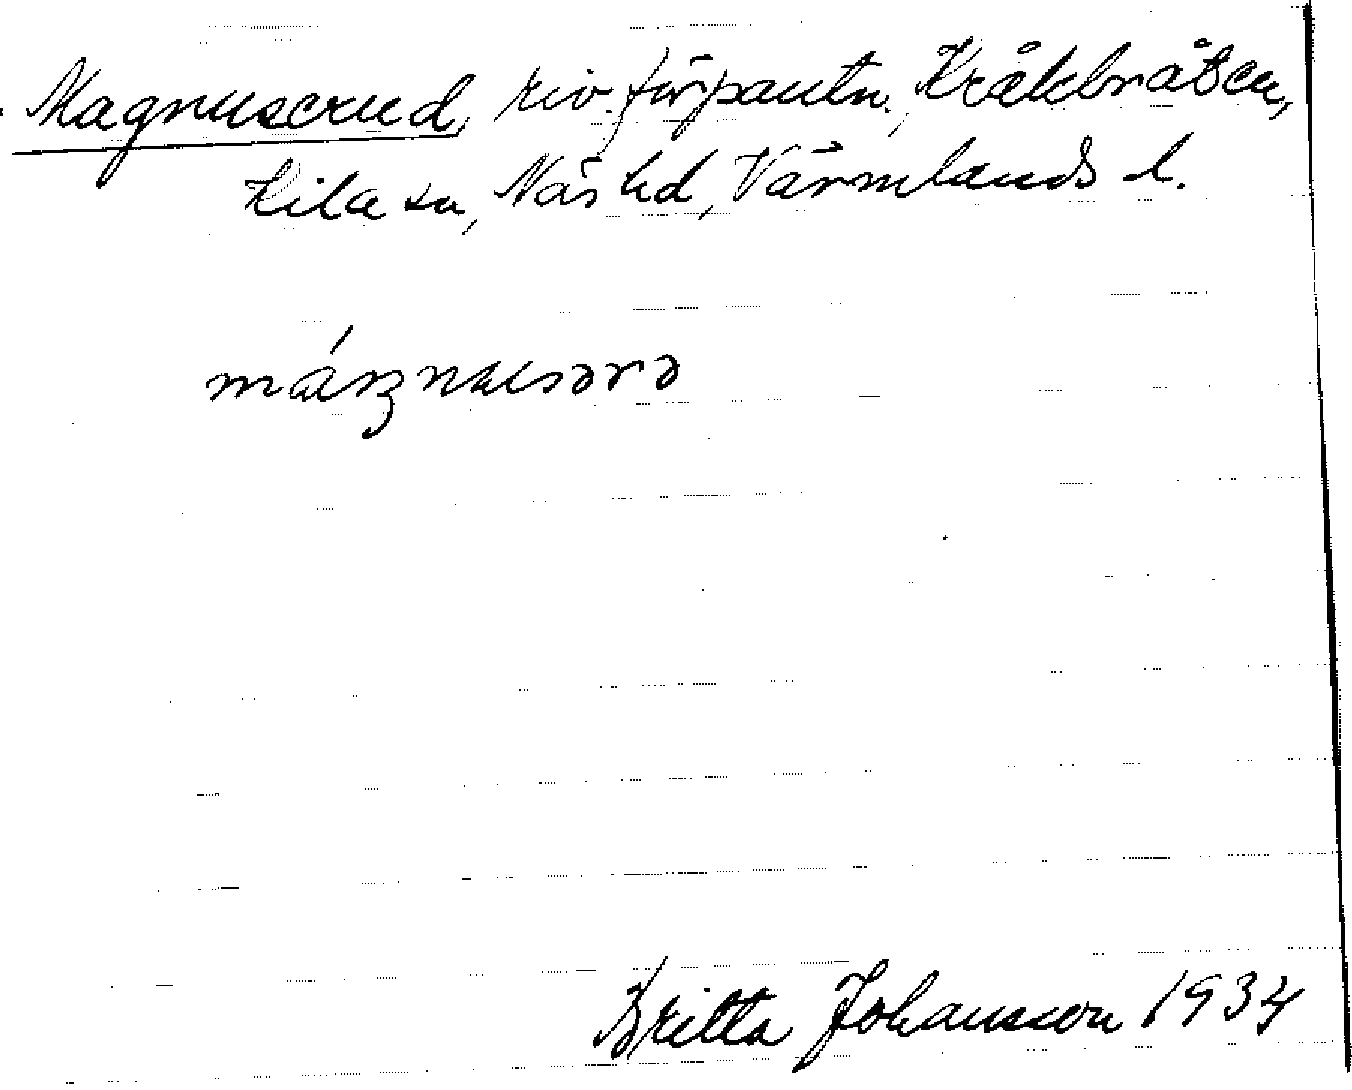 Magnuserud, riv. förpantn., Kråkbråten,
Kila sn, Näs hd, Värmlands l.
máŋnusərə
Britta Johansson 1934